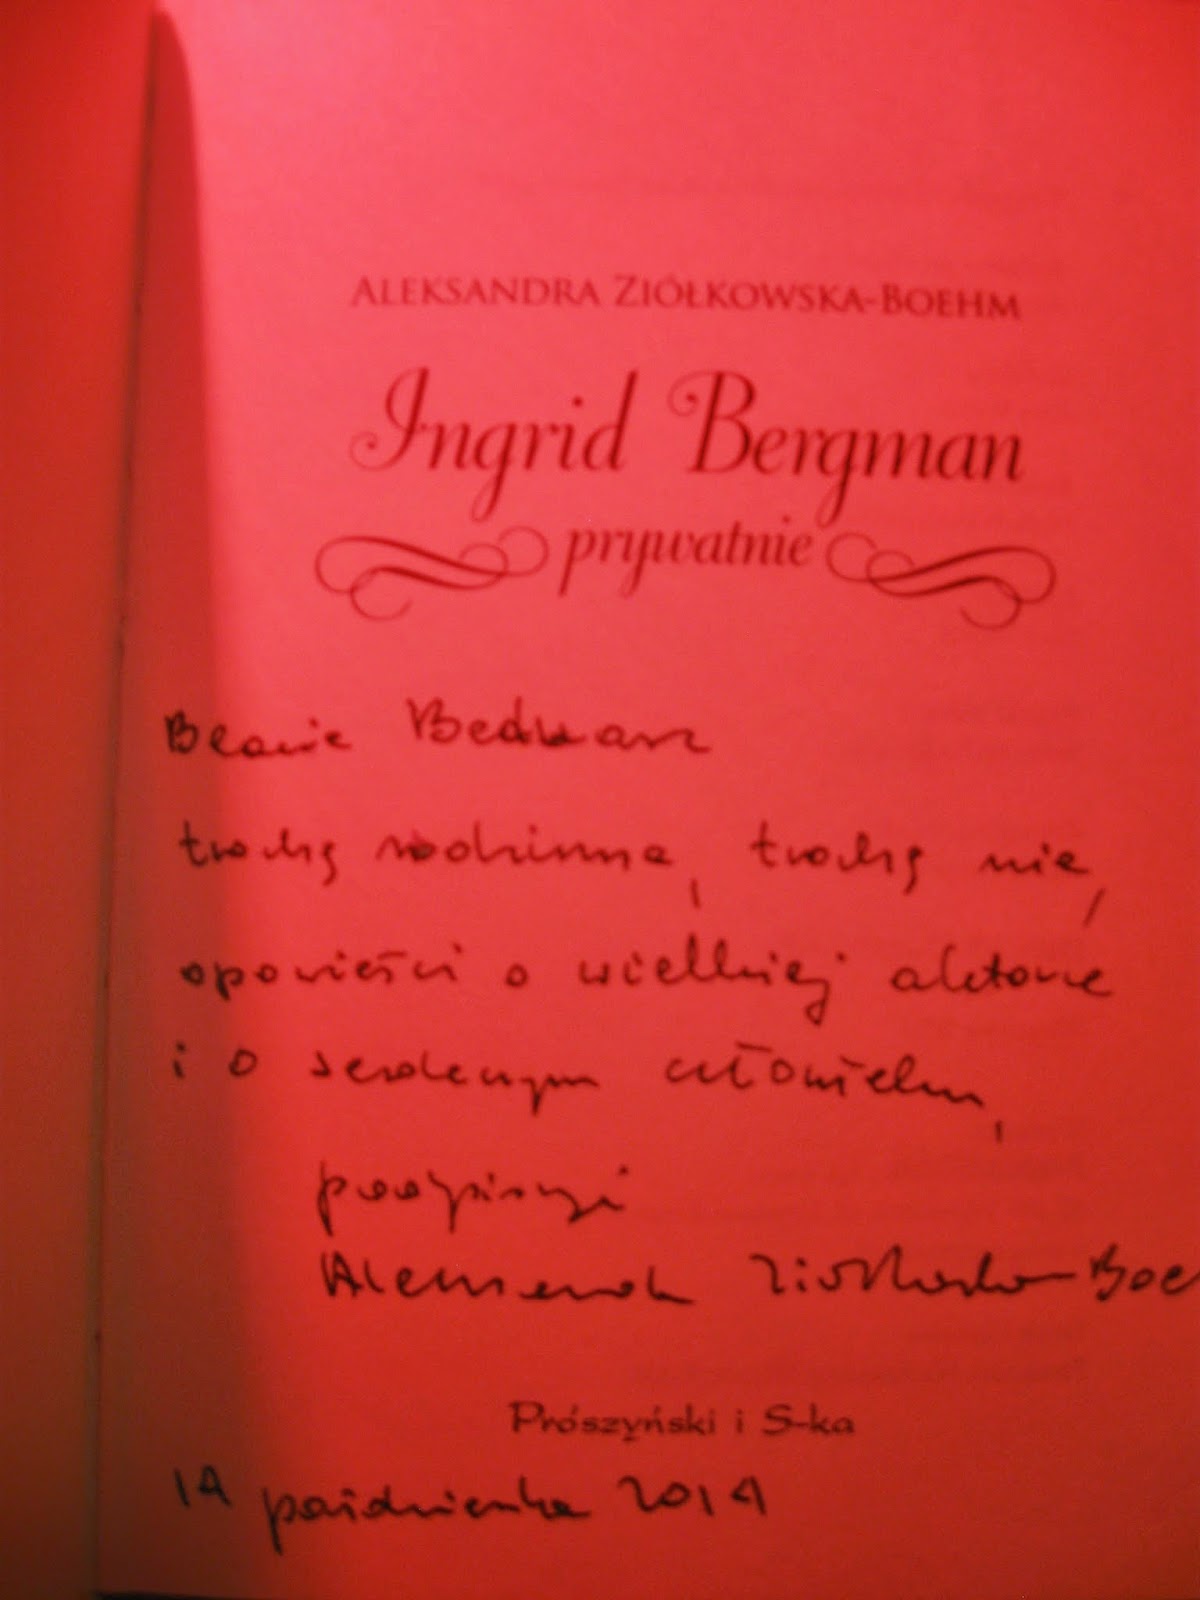 ALEKSANDRA ZIÓŁKOWSKA-BOEHM
Ingrid Bergman
prywatnie
Beacie Bednarz
trochę rodzinne, trochę nie,
opowieści o wielkiej aktorce
i o serdecznym człowieku,
podpisuje
Aleksandra Ziółkowska-Boe
Prószyński i S-ka
14 października 2014